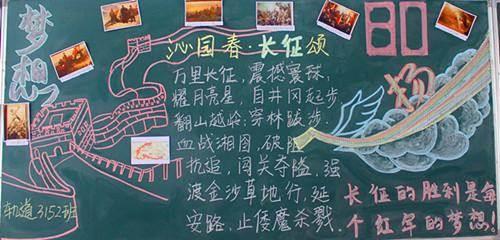 梦想
沁园春·长征颂
80
万里长征，震撼寰球，
耀月亮星，自井冈起步
翻山越岭，穿林跋步，
血战湘图，破
抗追，闯关夺隘，强
渡金沙草地行，延
安路，止倭魔杀戮。
长征的胜利是每
个红军的梦想。
轨道3152班